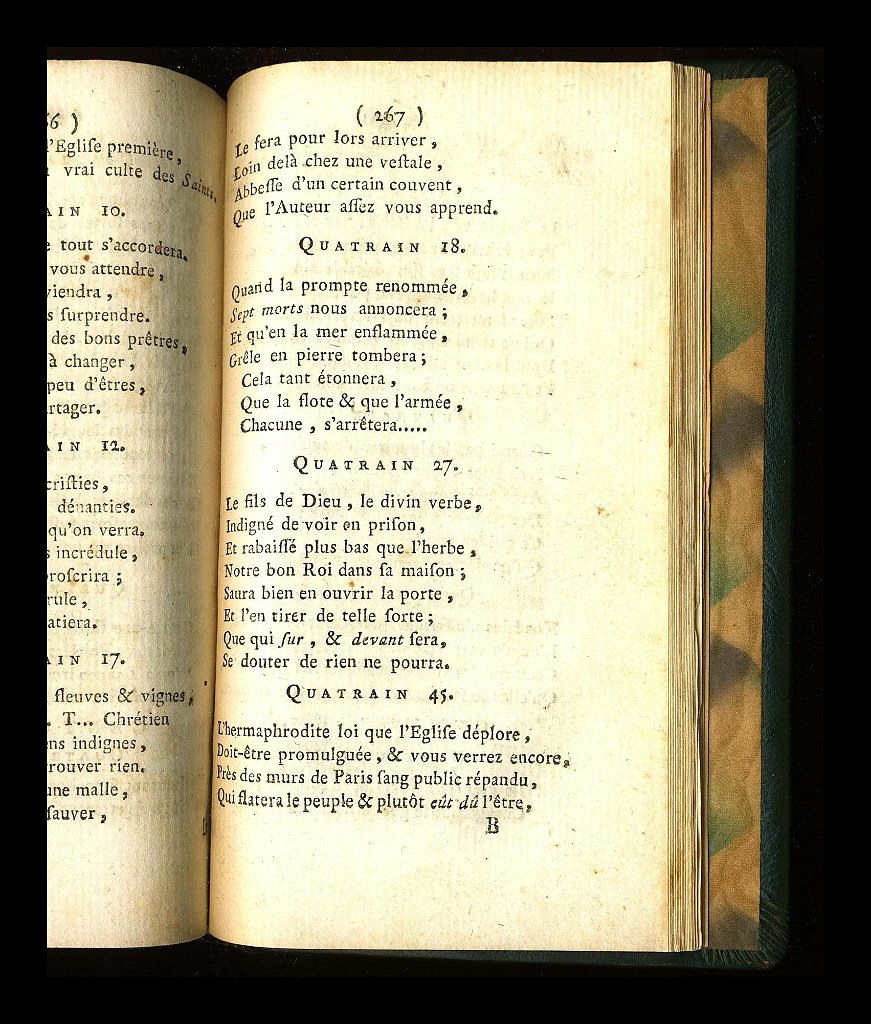 66 )
l'Egliſe première,
vrai culte des Saints,
AIN 10.
e tout s'accordera.
vous attendre,
viendra,
s ſurprendre.
des bons prêtres,
à changer,
peu d'êtres,
artager.
AIN 12.
criſties,
dénanties.
qu'on verra.
s incrédule,
proſcrira ;
rule,
atiera.
AIN 17.
fleuves & vignes,
. T... Chrétien
ens indignes,
rouver rien.
une malle,
ſauver,
( 267 )
Le ſera pour lors arriver,
Loin delà chez une veſtale,
Abbeſſe d'un certain couvent,
Que l'Auteur aſſez vous apprend.
QUATRAIN 18.
Quand la prompte renommée,
Sept morts nous annoncera ;
Et qu'en la mer enflammée,
Grêle en pierre tombera ;
Cela tant étonnera,
Que la flote & que l'armée,
Chacune, s'arrêtera.....
QUATRAIN 27.
Le fils de Dieu, le divin verbe,
Indigné de voir en priſon,
Et rabaiſſé plus bas que l'herbe,
Notre bon Roi dans ſa maiſon ;
Saura bien en ouvrir la porte,
Et l'en tirer de telle ſorte ;
Que qui ſur, & devant ſera,
Se douter de rien ne pourra.
QUATRAIN 45.
L'hermaphrodite loi que l'Egliſe déplore,
Doit-être promulguée, & vous verrez encore,
Près des murs de Paris ſang public répandu,
Qui flatera le peuple & plutôt eût dû l'être,
B